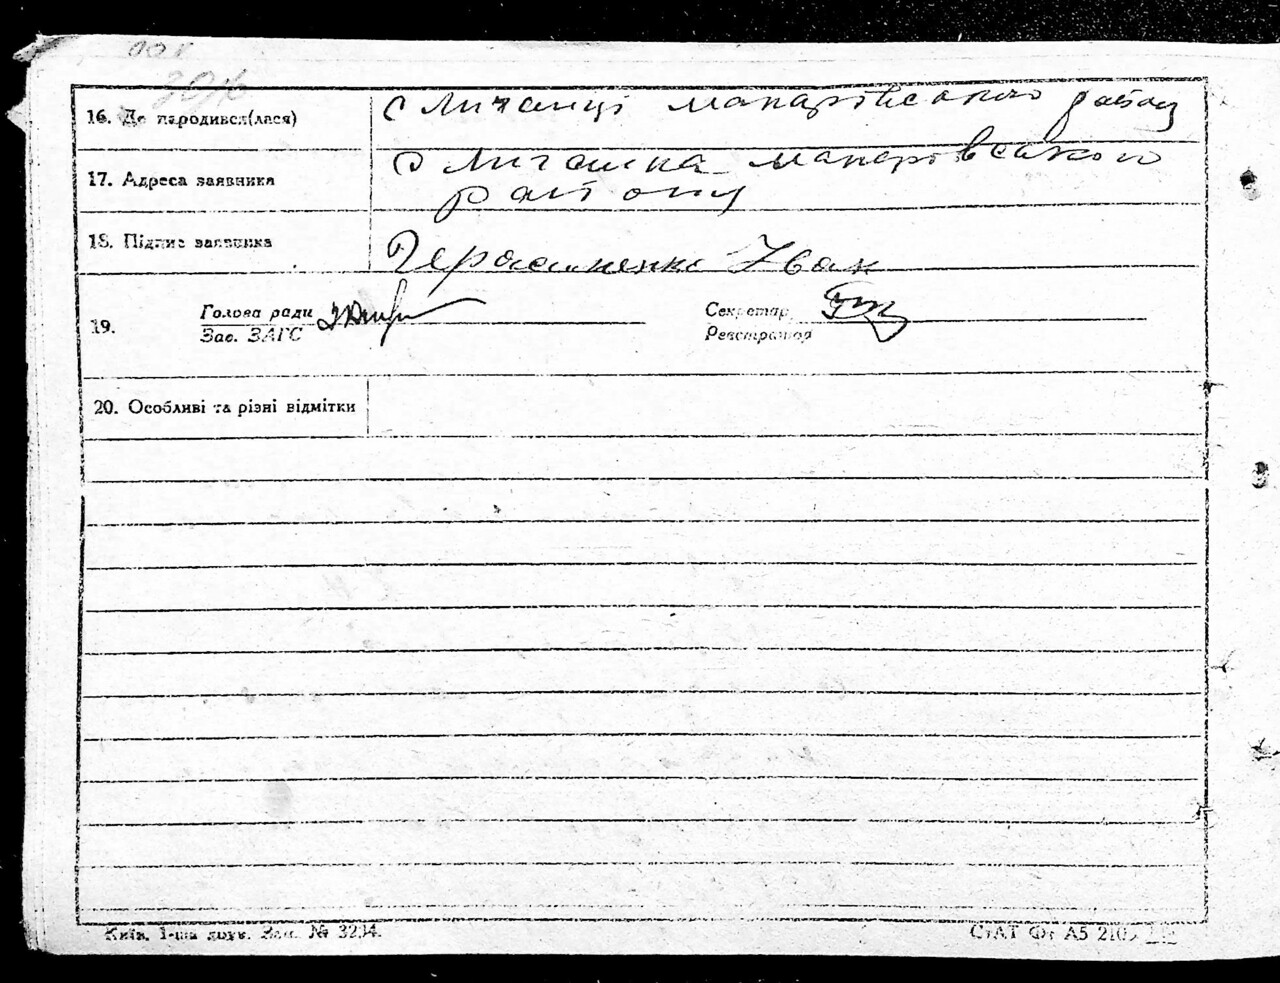 16. Де народився(лася) с Личанці макарівського району
17. Адреса заявника с Личанка макарівського
району
18. Підпис заявника Герасименко Іван
19. Голова ради Секретар
Зав. ЗАГС Реєстратор
20. Особливі та різні відмітки
Київ, 1-ша друк. Зам. № 3234. СтАТ Фт А5 210